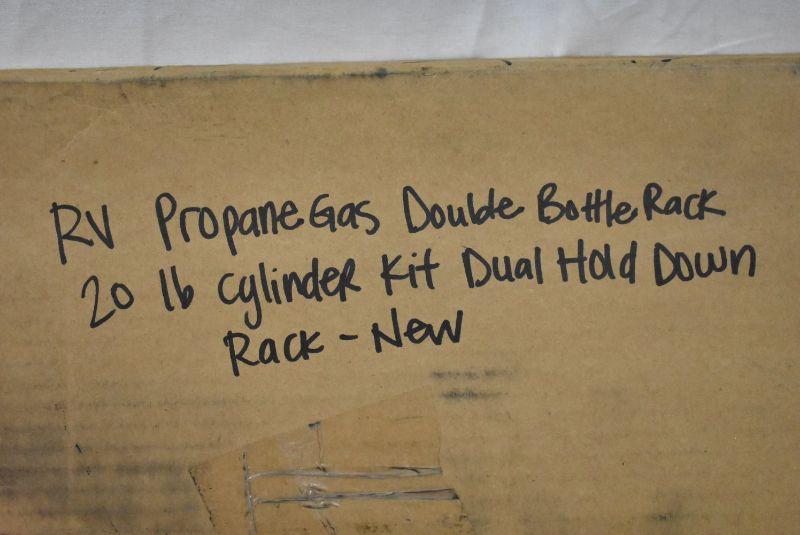 RV Propane Gas Double Bottle Rack
20 lb Cylinder Kit Dual Hold Down
Rack - New